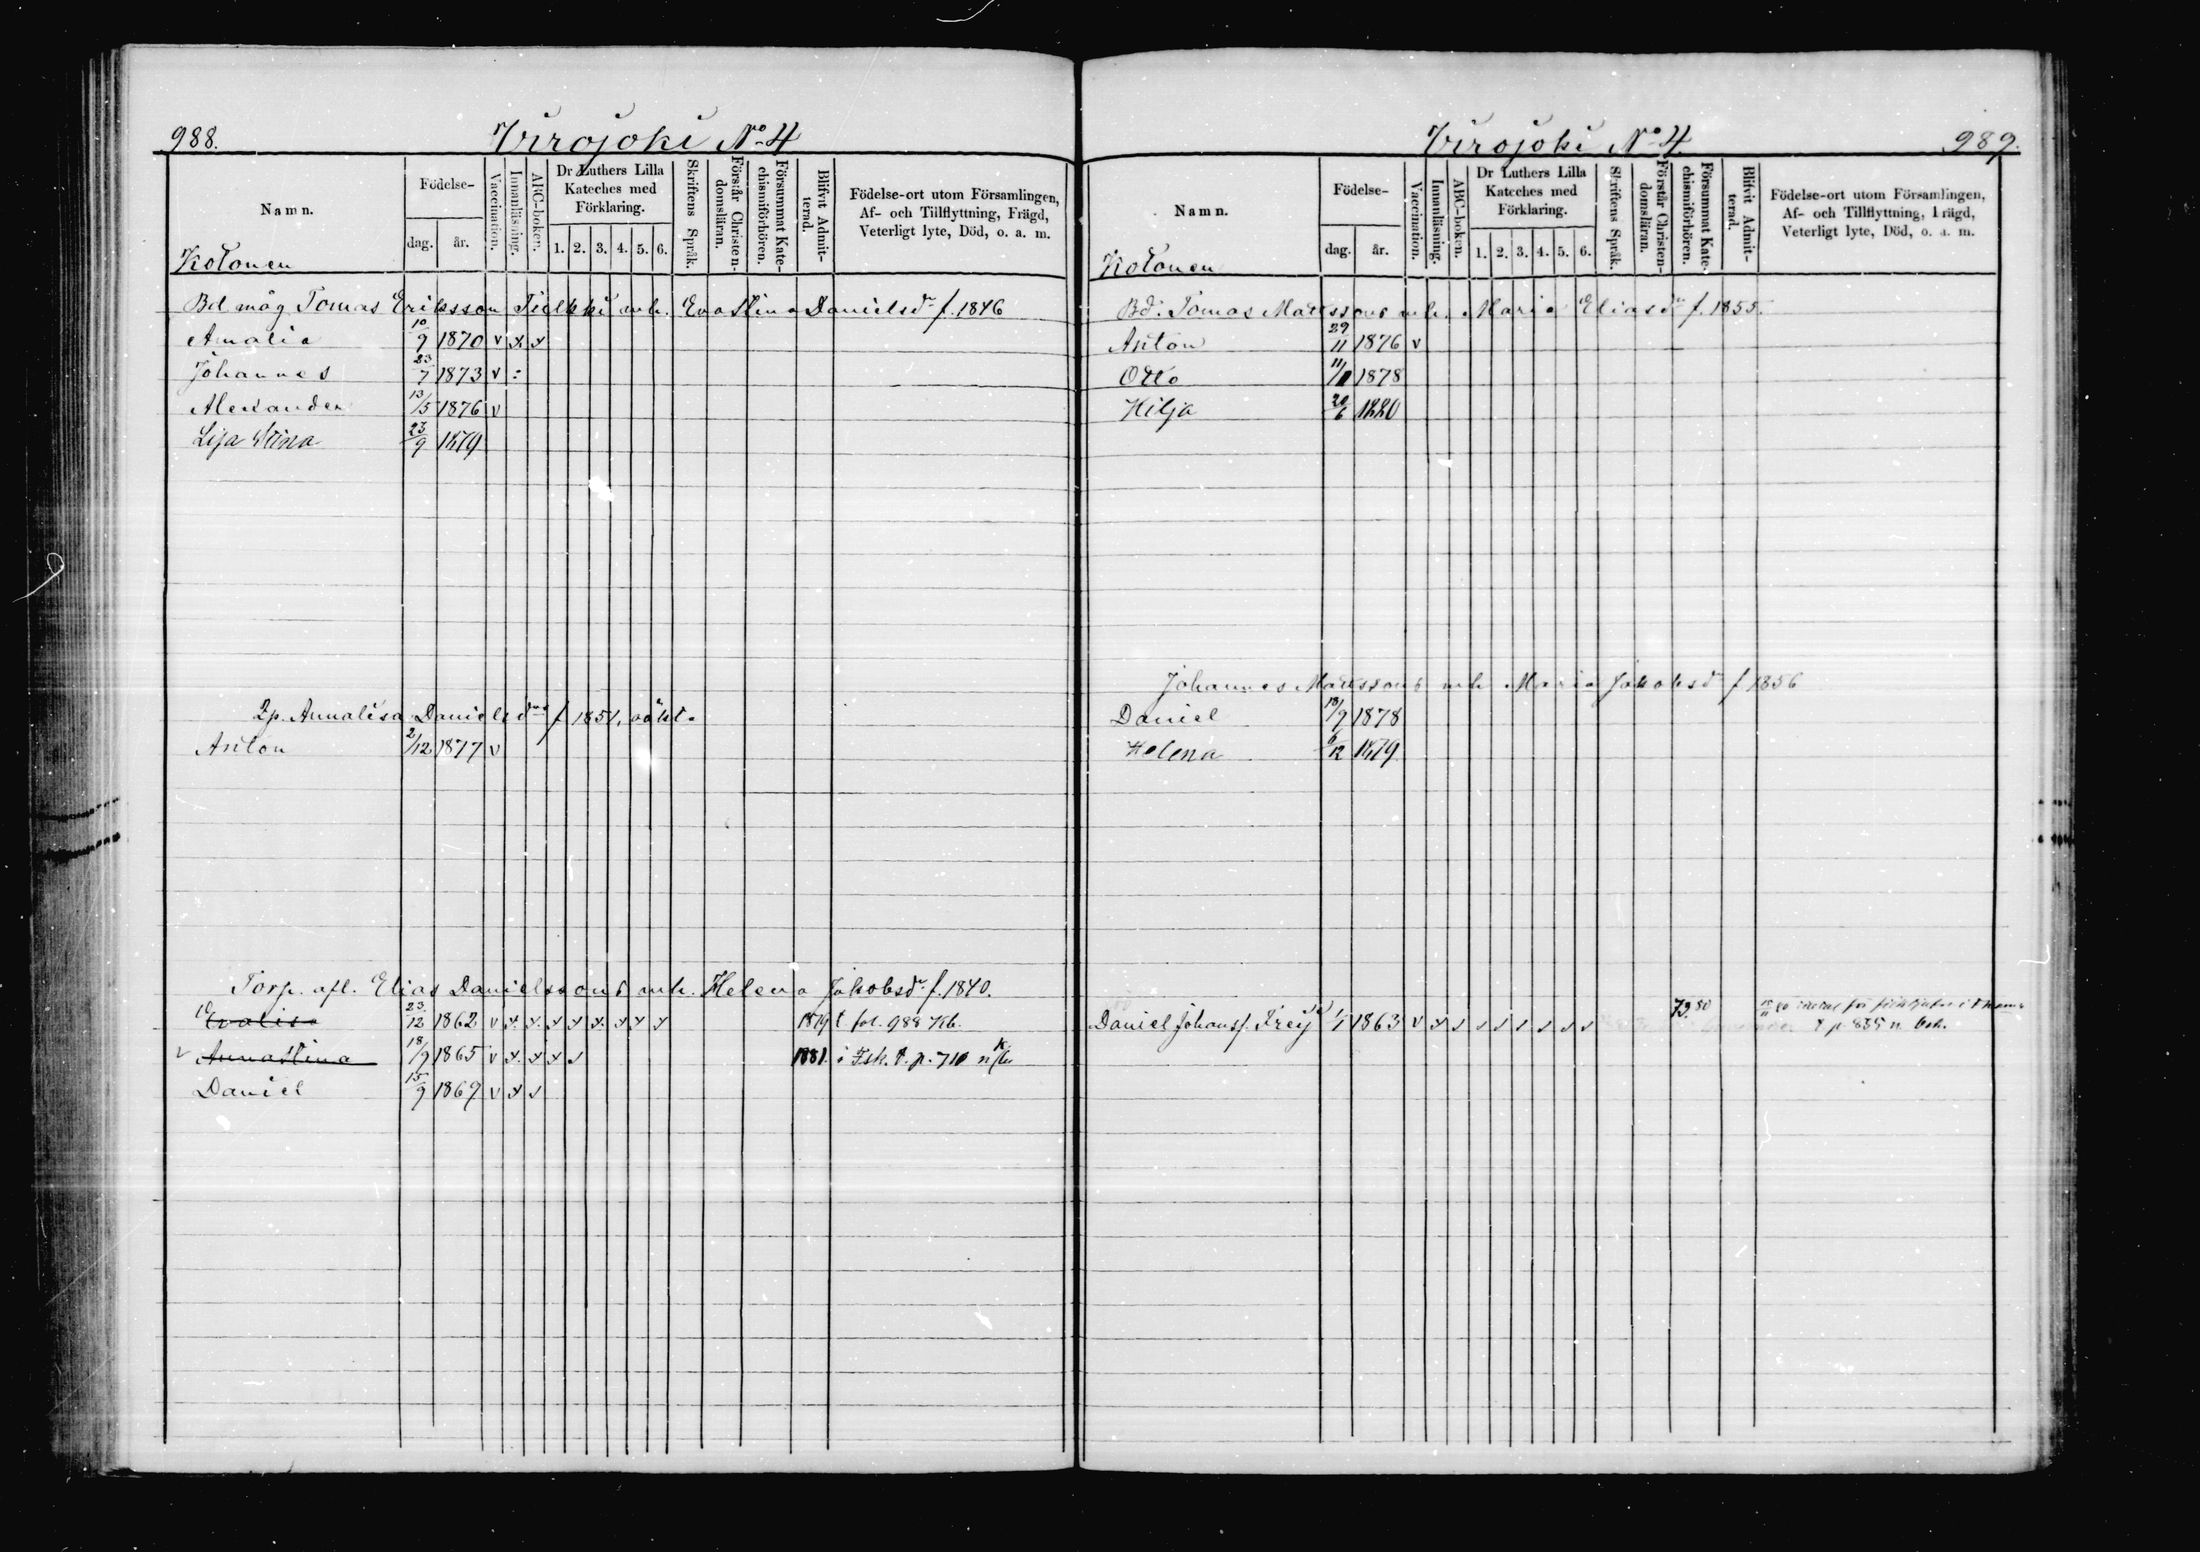 988.
Virojoki No 4
Namn.
Födelse-
dag.
år.
Vaccination.
Innanläsning.
ABC-boken.
Dr Luthers Lilla
Kateches med
Förklaring.
1. 2. 3. 4. 5. 6.
Skriftens Språk.
Förstår Christen-
domsläran.
Försummat Kate-
chismiförhören.
Blifvit Admit-
terad.
Födelse-ort utom Församlingen,
Af- och Tillflyttning, Frägd,
Veterligt lyte, Död, o. a. m.
Kotonen
Bd måg Tomas Eriksson Tielkki mh. Eva Stina Danielsdr f. 1846
Amalia 10/9 1870 v x x
Johannes 23/7 1873 v :
Alexander 13/5 1876 v
Lisa Stina 23/9 1879
Annalisa Danielsdrs f 1851, oäkta
Anton 2/12 1877 v
Torp. afl. Elias Danielssons mh. Helena Jakobsdr f. 1840.
Evalisa 23/12 1862 v x x x x x x x x 1879 t. fol. 988 Kb.
v Annastina 18/9 1865 v x x x v 1881. i Fsk. t. p. 710 n Kb
Daniel 15/9 1869 v x v
Virojoki No 4
989.
Namn.
Födelse-
dag.
år.
Vaccination.
Innanläsning.
ABC-boken.
Dr Luthers Lilla
Kateches med
Förklaring.
1. 2. 3. 4. 5. 6.
Skriftens Språk.
Förstår Christen-
domsläran.
Försummat Kate-
chismiförhören.
Blifvit Admit-
terad.
Födelse-ort utom Församlingen,
Af- och Tillflyttning, Frägd,
Veterligt lyte, Död, o. a. m.
Kotonen
Bd. Tomas Mattssons mh. Maria Eliasdr f. 1855.
Anton 29/11 1876 v
Otto 11/11 1878
Hilja 20/6 1880
Johannes Mattssons mh Maria Jakobsdr f 1856
Daniel 18/9 1878
Helena 6/12 1879
Daniel Johanss. Frey 1/1 1863 v x v v v v v v v 79.80
t p. 835 n. bok.